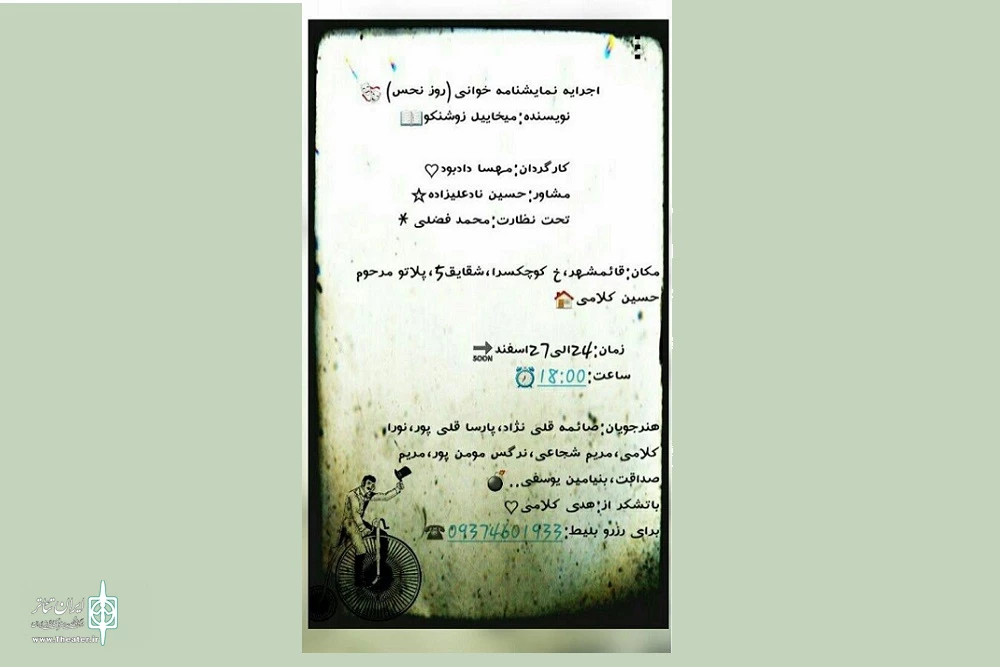 اجرایه نمایشنامه خوانی (روز نحس)
نویسنده:میخاییل زوشنکو
کارگردان:مهسا دادبود
مشاور:حسین نادعلیزاده
تحت نظارت:محمد فضلی *
مکان:قائمشهر،خ کوچکسرا،شقایق5،پلاتو مرحوم
حسین کلامی
زمان:24الی27اسفند
SOON
ساعت:18:00
هنرجویان:صائمه قلی نژاد،پارسا قلی پور،نورا
کلامی،مریم شجاعی،نرگس مومن پور،مریم
صداقت،بنیامین یوسفی..
باتشکر از:هدی کلامی
برای رزرو بلیط:09374601933
ایران تئاتر
www.Theater.ir